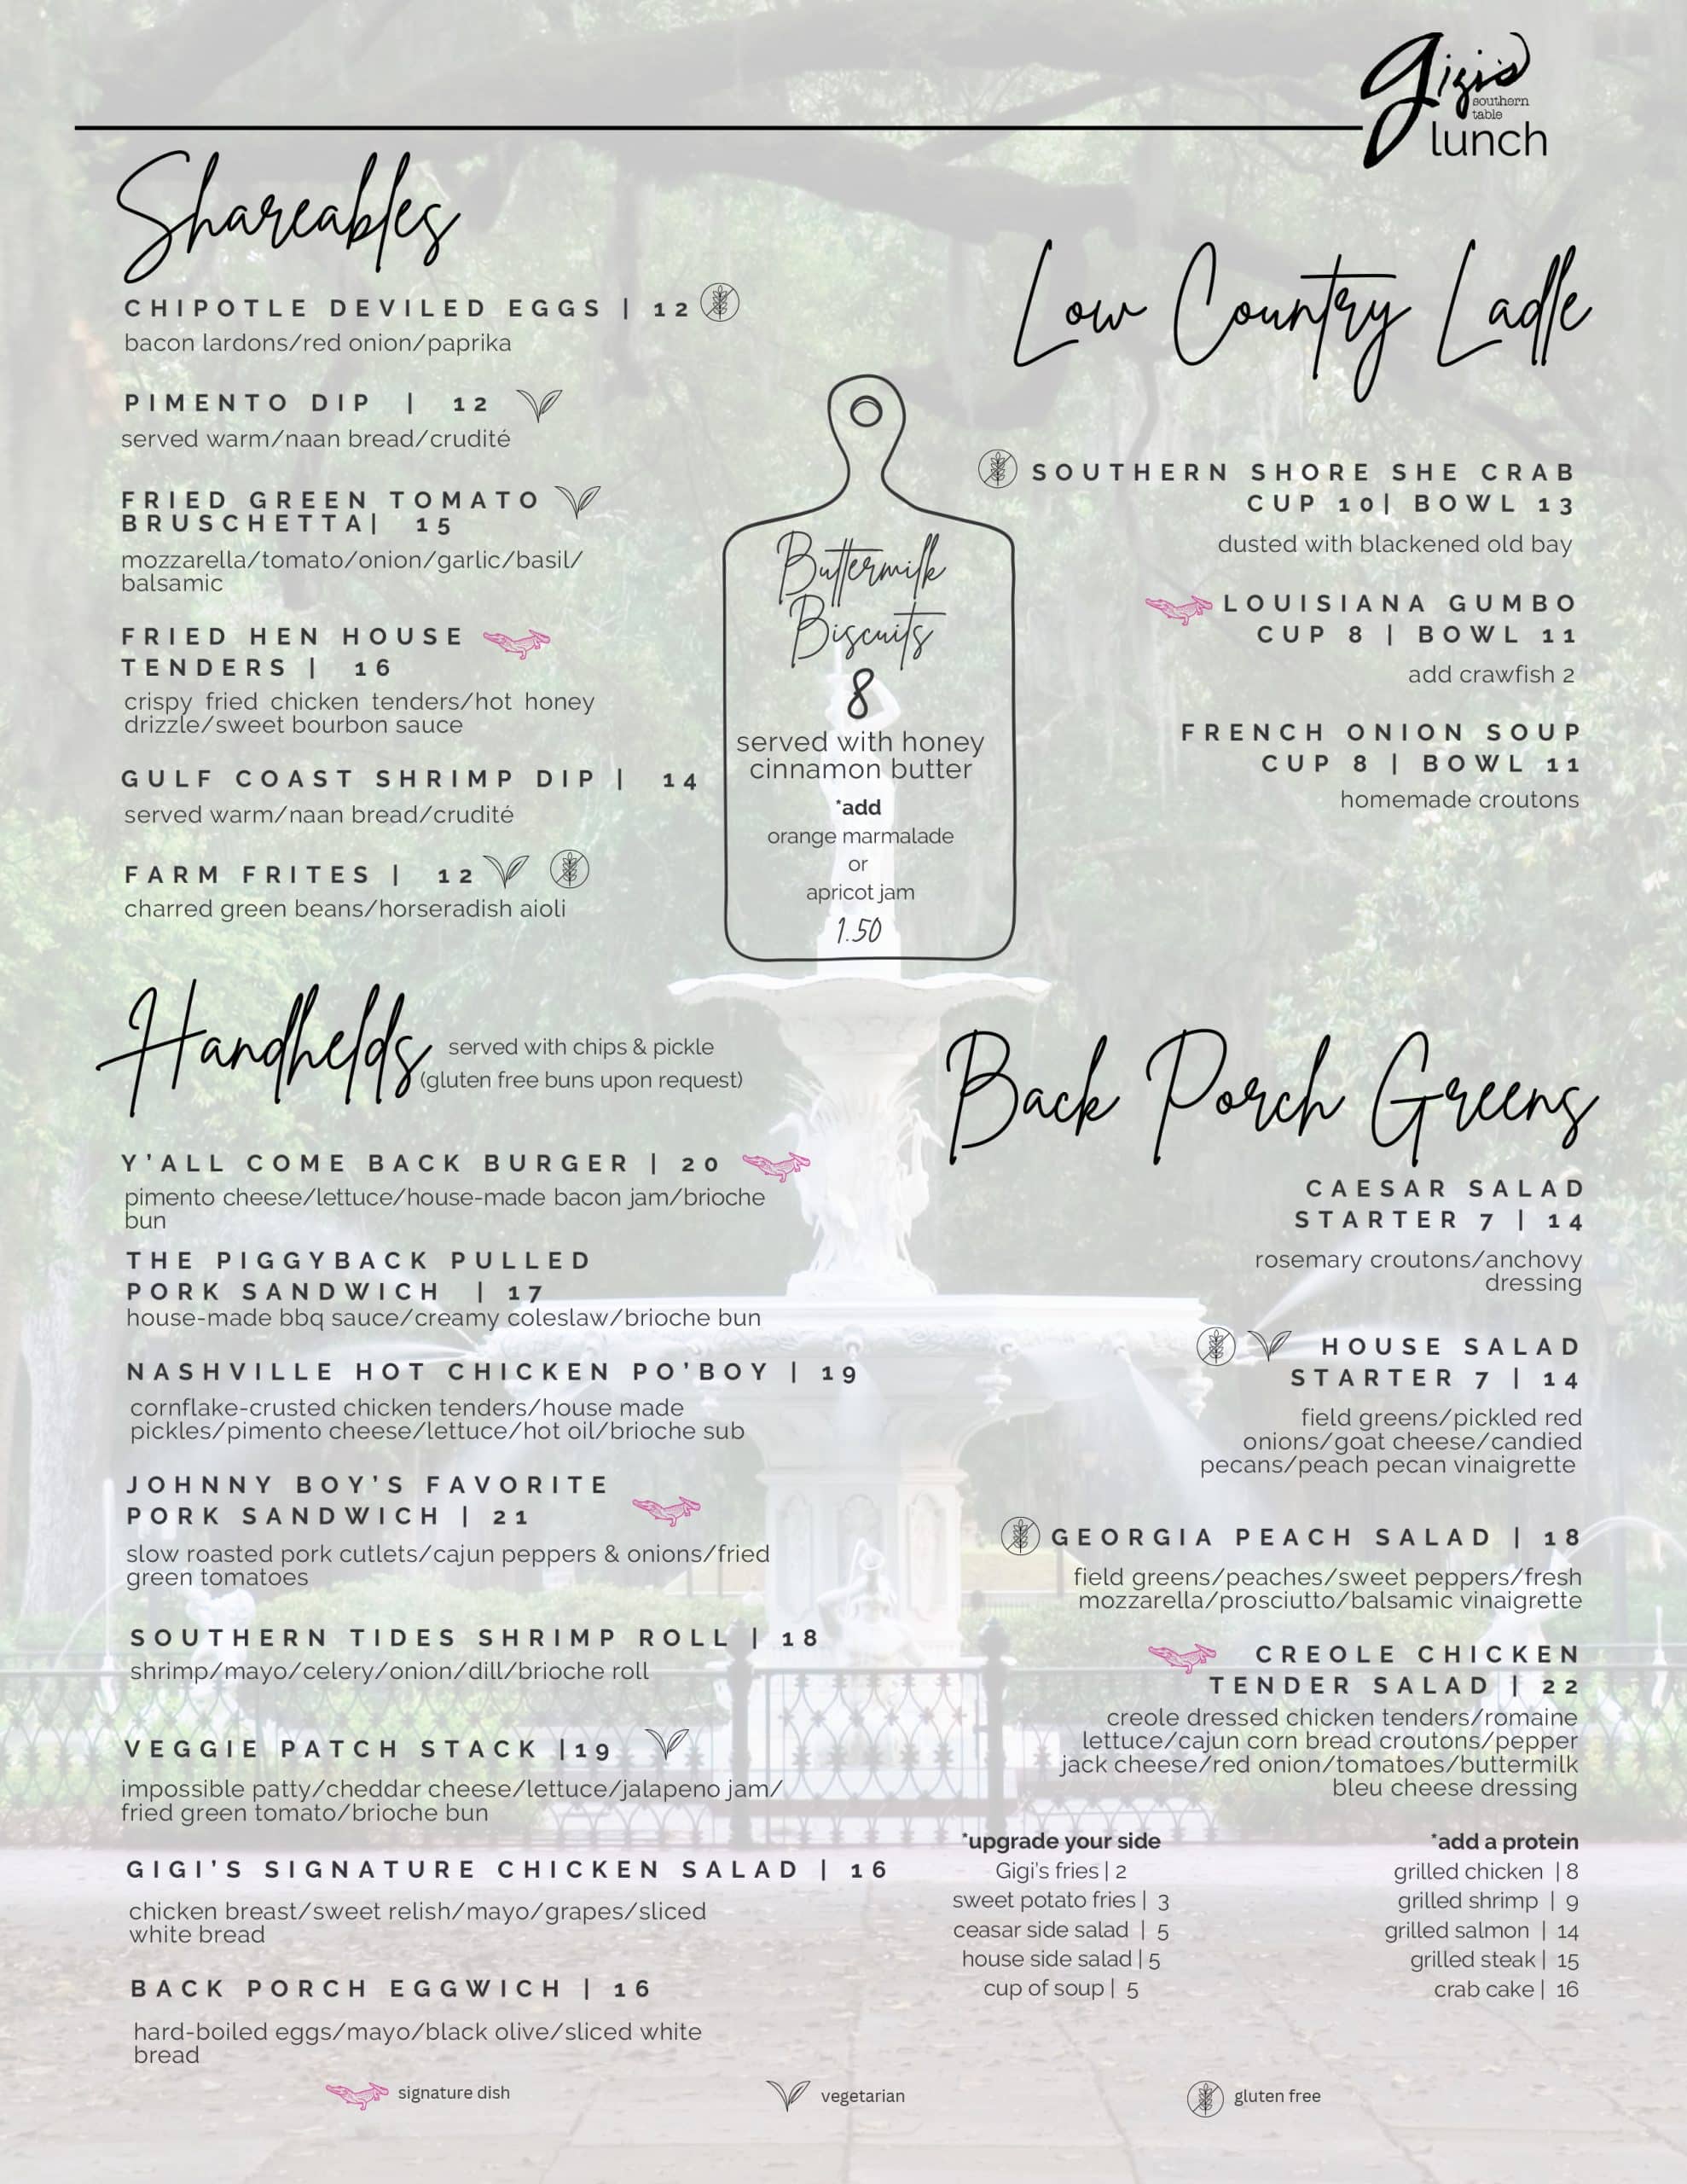 gigi's
southern
table
lunch
Shareables
CHIPOTLE DEVILED EGGS | 12
bacon lardons/red onion/paprika
PIMENTO DIP | 12
served warm/naan bread/crudité
FRIED GREEN TOMATO
BRUSCHETTA| 15
mozzarella/tomato/onion/garlic/basil/
balsamic
FRIED HEN HOUSE
TENDERS | 16
crispy fried chicken tenders/hot honey
drizzle/sweet bourbon sauce
GULF COAST SHRIMP DIP | 14
served warm/naan bread/crudité
FARM FRITES | 12
charred green beans/horseradish aioli
Buttermilk
Biscuits
8
served with honey
cinnamon butter
*add
orange marmalade
or
apricot jam
1.50
Low Country Ladle
SOUTHERN SHORE SHE CRAB
CUP 10| BOWL 13
dusted with blackened old bay
LOUISIANA GUMBO
CUP 8 | BOWL 11
add crawfish 2
FRENCH ONION SOUP
CUP 8 | BOWL 11
homemade croutons
Handhelds
served with chips & pickle
(gluten free buns upon request)
Y'ALL COME BACK BURGER | 20
pimento cheese/lettuce/house-made bacon jam/brioche
bun
THE PIGGYBACK PULLED
PORK SANDWICH | 17
house-made bbq sauce/creamy coleslaw/brioche bun
NASHVILLE HOT CHICKEN PO'BOY | 19
cornflake-crusted chicken tenders/house made
pickles/pimento cheese/lettuce/hot oil/brioche sub
JOHNNY BOY'S FAVORITE
PORK SANDWICH | 21
slow roasted pork cutlets/cajun peppers & onions/fried
green tomatoes
SOUTHERN TIDES SHRIMP ROLL | 18
shrimp/mayo/celery/onion/dill/brioche roll
VEGGIE PATCH STACK |19
impossible patty/cheddar cheese/lettuce/jalapeno jam/
fried green tomato/brioche bun
GIGI'S SIGNATURE CHICKEN SALAD | 16
chicken breast/sweet relish/mayo/grapes/sliced
white bread
BACK PORCH EGGWICH | 16
hard-boiled eggs/mayo/black olive/sliced white
bread
Back Porch Greens
CAESAR SALAD
STARTER 7 | 14
rosemary croutons/anchovy
dressing
HOUSE SALAD
STARTER 7 | 14
field greens/pickled red
onions/goat cheese/candied
pecans/peach pecan vinaigrette
GEORGIA PEACH SALAD | 18
field greens/peaches/sweet peppers/fresh
mozzarella/prosciutto/balsamic vinaigrette
CREOLE CHICKEN
TENDER SALAD | 22
creole dressed chicken tenders/romaine
lettuce/cajun corn bread croutons/pepper
jack cheese/red onion/tomatoes/buttermilk
bleu cheese dressing
*upgrade your side
Gigi's fries | 2
sweet potato fries | 3
ceasar side salad | 5
house side salad | 5
cup of soup | 5
*add a protein
grilled chicken | 8
grilled shrimp | 9
grilled salmon | 14
grilled steak | 15
crab cake | 16
signature dish
vegetarian
gluten free